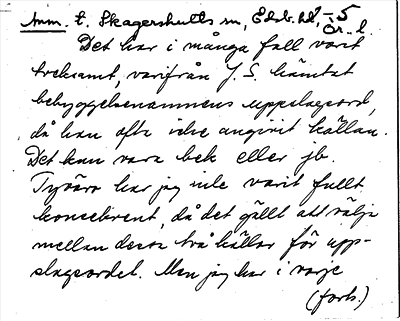 Anm. t. Skagershults sn, Edsb. hd, -5
Ör. l.
Det har i många fall varit
tveksamt, varifrån J. S. hämtat
bebyggelsenamnens uppslagsord,
då han ofta icke angivit källan.
Det kan vara bek eller jb.
Tyvärr har jag inte varit fullt
konsekvent, då det gällt att välja
mellan dessa två källor för upp-
slagsordet. Men jag har i varje
(forts.)